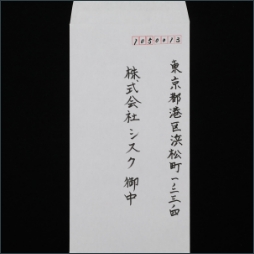 1050013
東京都港区浜松町一ノ二三ノ四
株式会社シスク御中